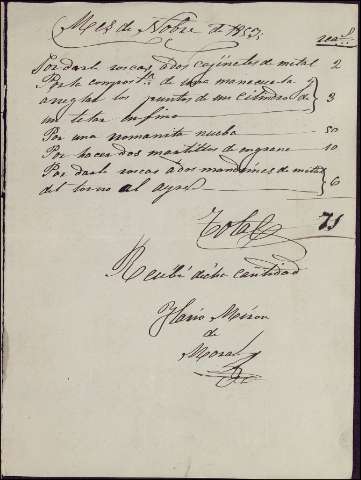 Mes de Nobre de 1852. reas.
Por darle roscas a dos cojinetes de metal 2
Por la compostra. de una manezuela y
arreglar los puntos de un cilindro de 3
un telar
Por una romanita nueba 50
Por hacer dos martillos de engrane 10
Por darle roscas a dos mandrines de metal
del torno al ayre 6
Total 71
Recibi dicha cantidad
Ylario Miron
de
Moral